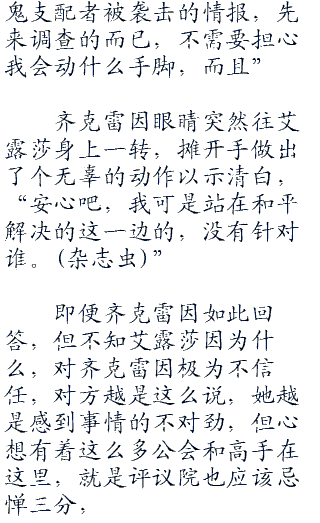 鬼支配者被袭击的情报，先
来调查的而已，不需要担心
我会动什么手脚，而且”
齐克雷因眼睛突然往艾
露莎身上一转，摊开手做出
了个无辜的动作以示清白，
“安心吧，我可是站在和平
解决的这一边的，没有针对
谁。(杂志虫)”
即便齐克雷因如此回
答，但不知艾露莎因为什
么，对齐克雷因极为不信
任，对方越是这么说，她越
是感到事情的不对劲，但心
想有着这么多公会和高手在
这里，就是评议院也应该忌
惮三分，